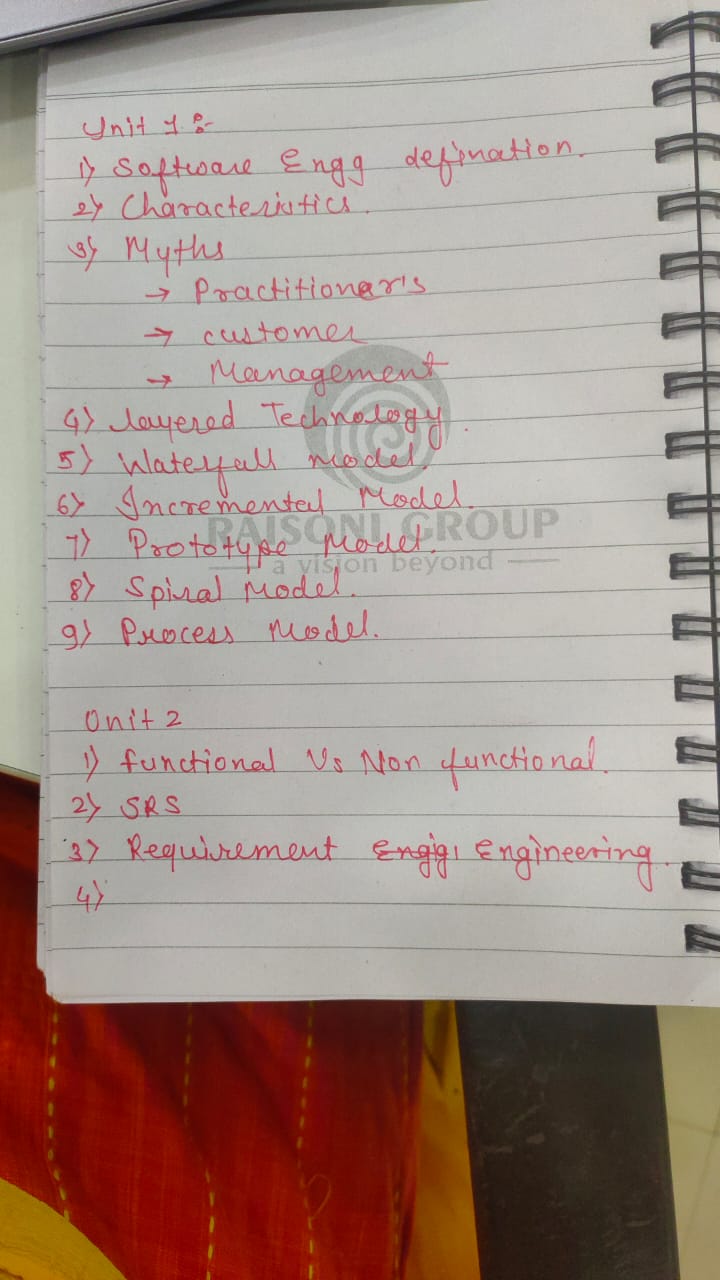 Unit 1 :-
1) Software Engg defination.
2) Characteristics.
3) Myths
→ Practitioner's
→ customer
→ Management
4) layered Technology.
5) Waterfall model.
6) Incremental Model.
RAISONI GROUP
7) Prototype Model.
a vision beyond
8) Spiral Model.
9) Process Model.
Unit 2
1) functional Vs Non functional.
2) SRS
3) Requirement Engg. Engineering.
4)